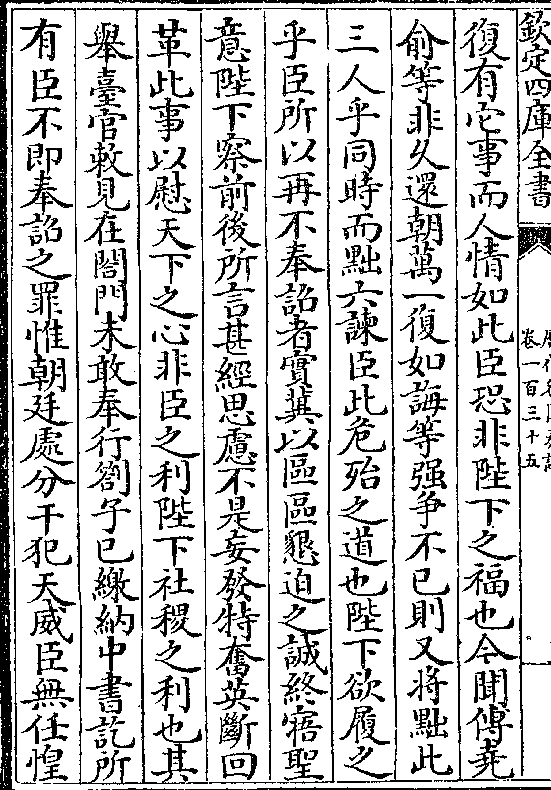 欽定四庫全書
卷一百三十五
復有它事而人情如此臣恐非陛下之福也今聞傅堯
俞等非久還朝萬一復如誨等强争不已則又將黜此
三人乎同時而黜六諫臣此危殆之道也陛下欲履之
乎臣所以再不奉詔者實冀以區區懇迫之誠終寤聖
意陛下察前後所言甚經思慮不是妄發特奮英斷回
革此事以慰天下之心非臣之利陛下社稷之利也其
舉臺官敕見在閤門未敢奉行劄子已繳納中書訖所
有臣不即奉詔之罪惟朝廷處分干犯天威臣無任惶